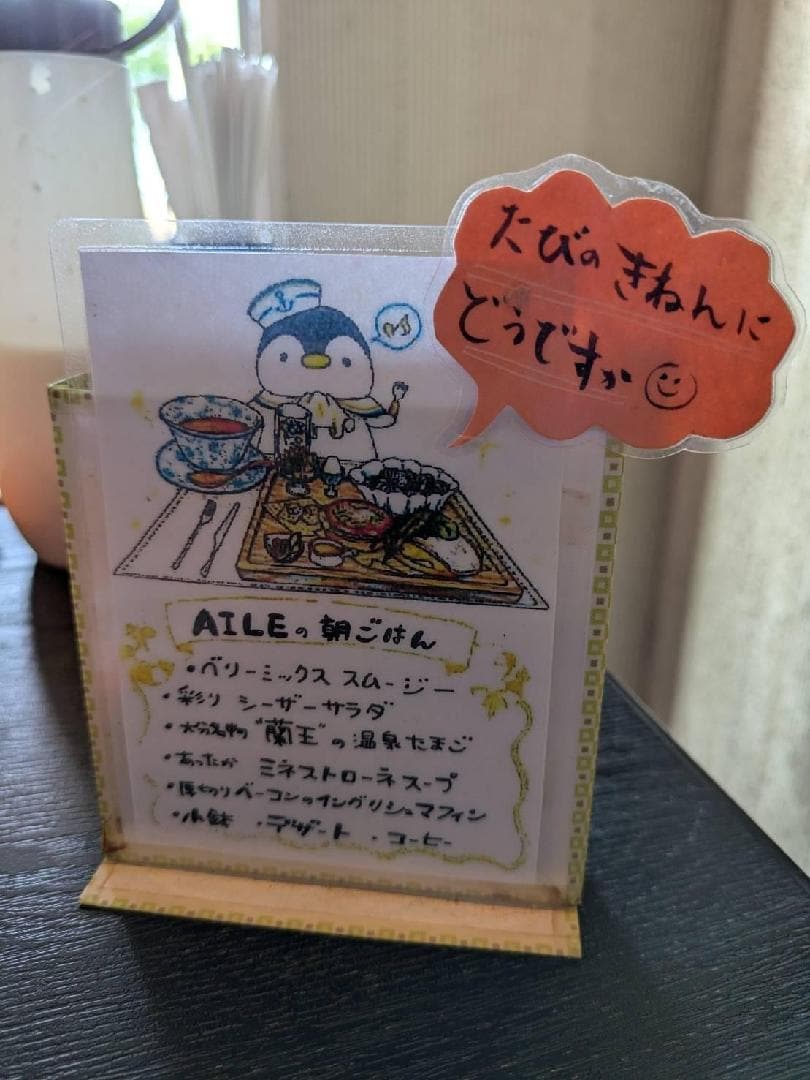 たびの きねんに
どうですか
AILEの朝ごはん
・ベリーミックス スムージー
・彩り シーザーサラダ
・大分名物"蘭王"の温泉たまご
・あったか ミネストローネスープ
・厚切りベーコンのイングリッシュマフィン
・小鉢 ・デザート ・コーヒー